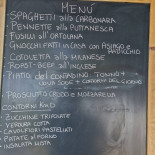 MENÙ
SPAGHETTI alla CARBONARA
PENNETTE alla PUTTANESCA
FUSILLI all'ORTOLANA
GNOCCHI FATTI IN CASA con ASIAGO e RADICCHIO
COTOLETTA alla MILANESE
ROAST-BEEF all'INGLESE
PIATTO del CONTADINO
PROSCIUTTO CRUDO e MOZZARELLA
CONTORNI
- ZUCCHINE TRIFOLATE
- VERDURA COTTA
- CAVOLFIORI PASTELLATI
- PATATE al FORNO
- INSALATA MISTA